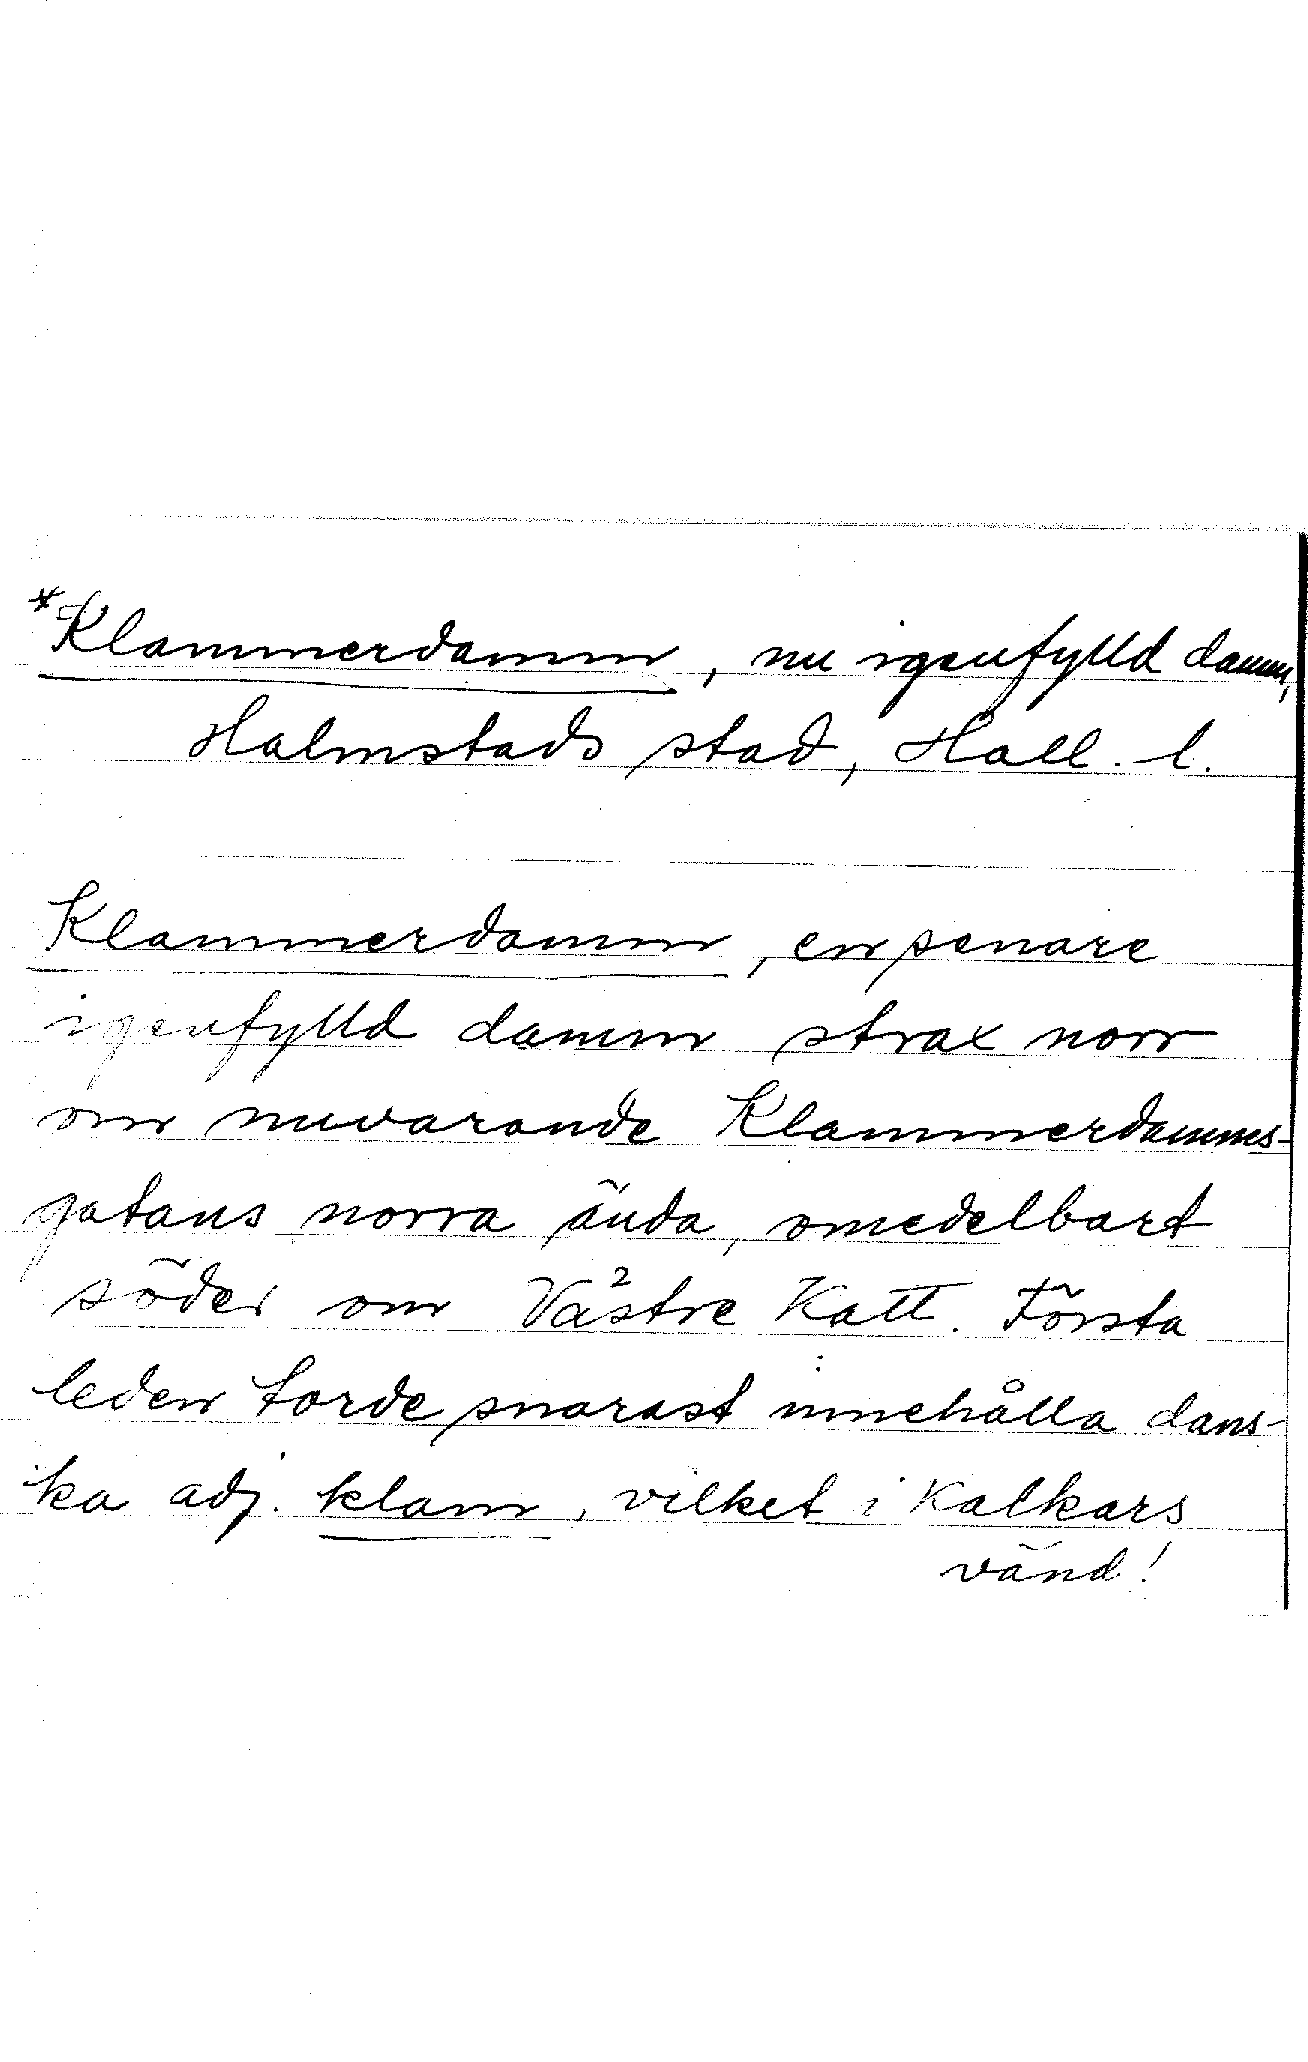 *Klammerdamm, nu igenfylld damm,
Halmstads stad, Hall. l.
Klammerdamm, en senare
igenfylld damm strax norr
om nuvarande Klammerdamms-
gatans norra ända, omedelbart
söder om Västre Katt. Första
leden torde snarast innehålla dans-
ka adj. klam, vilket i Kalkars
vänd!